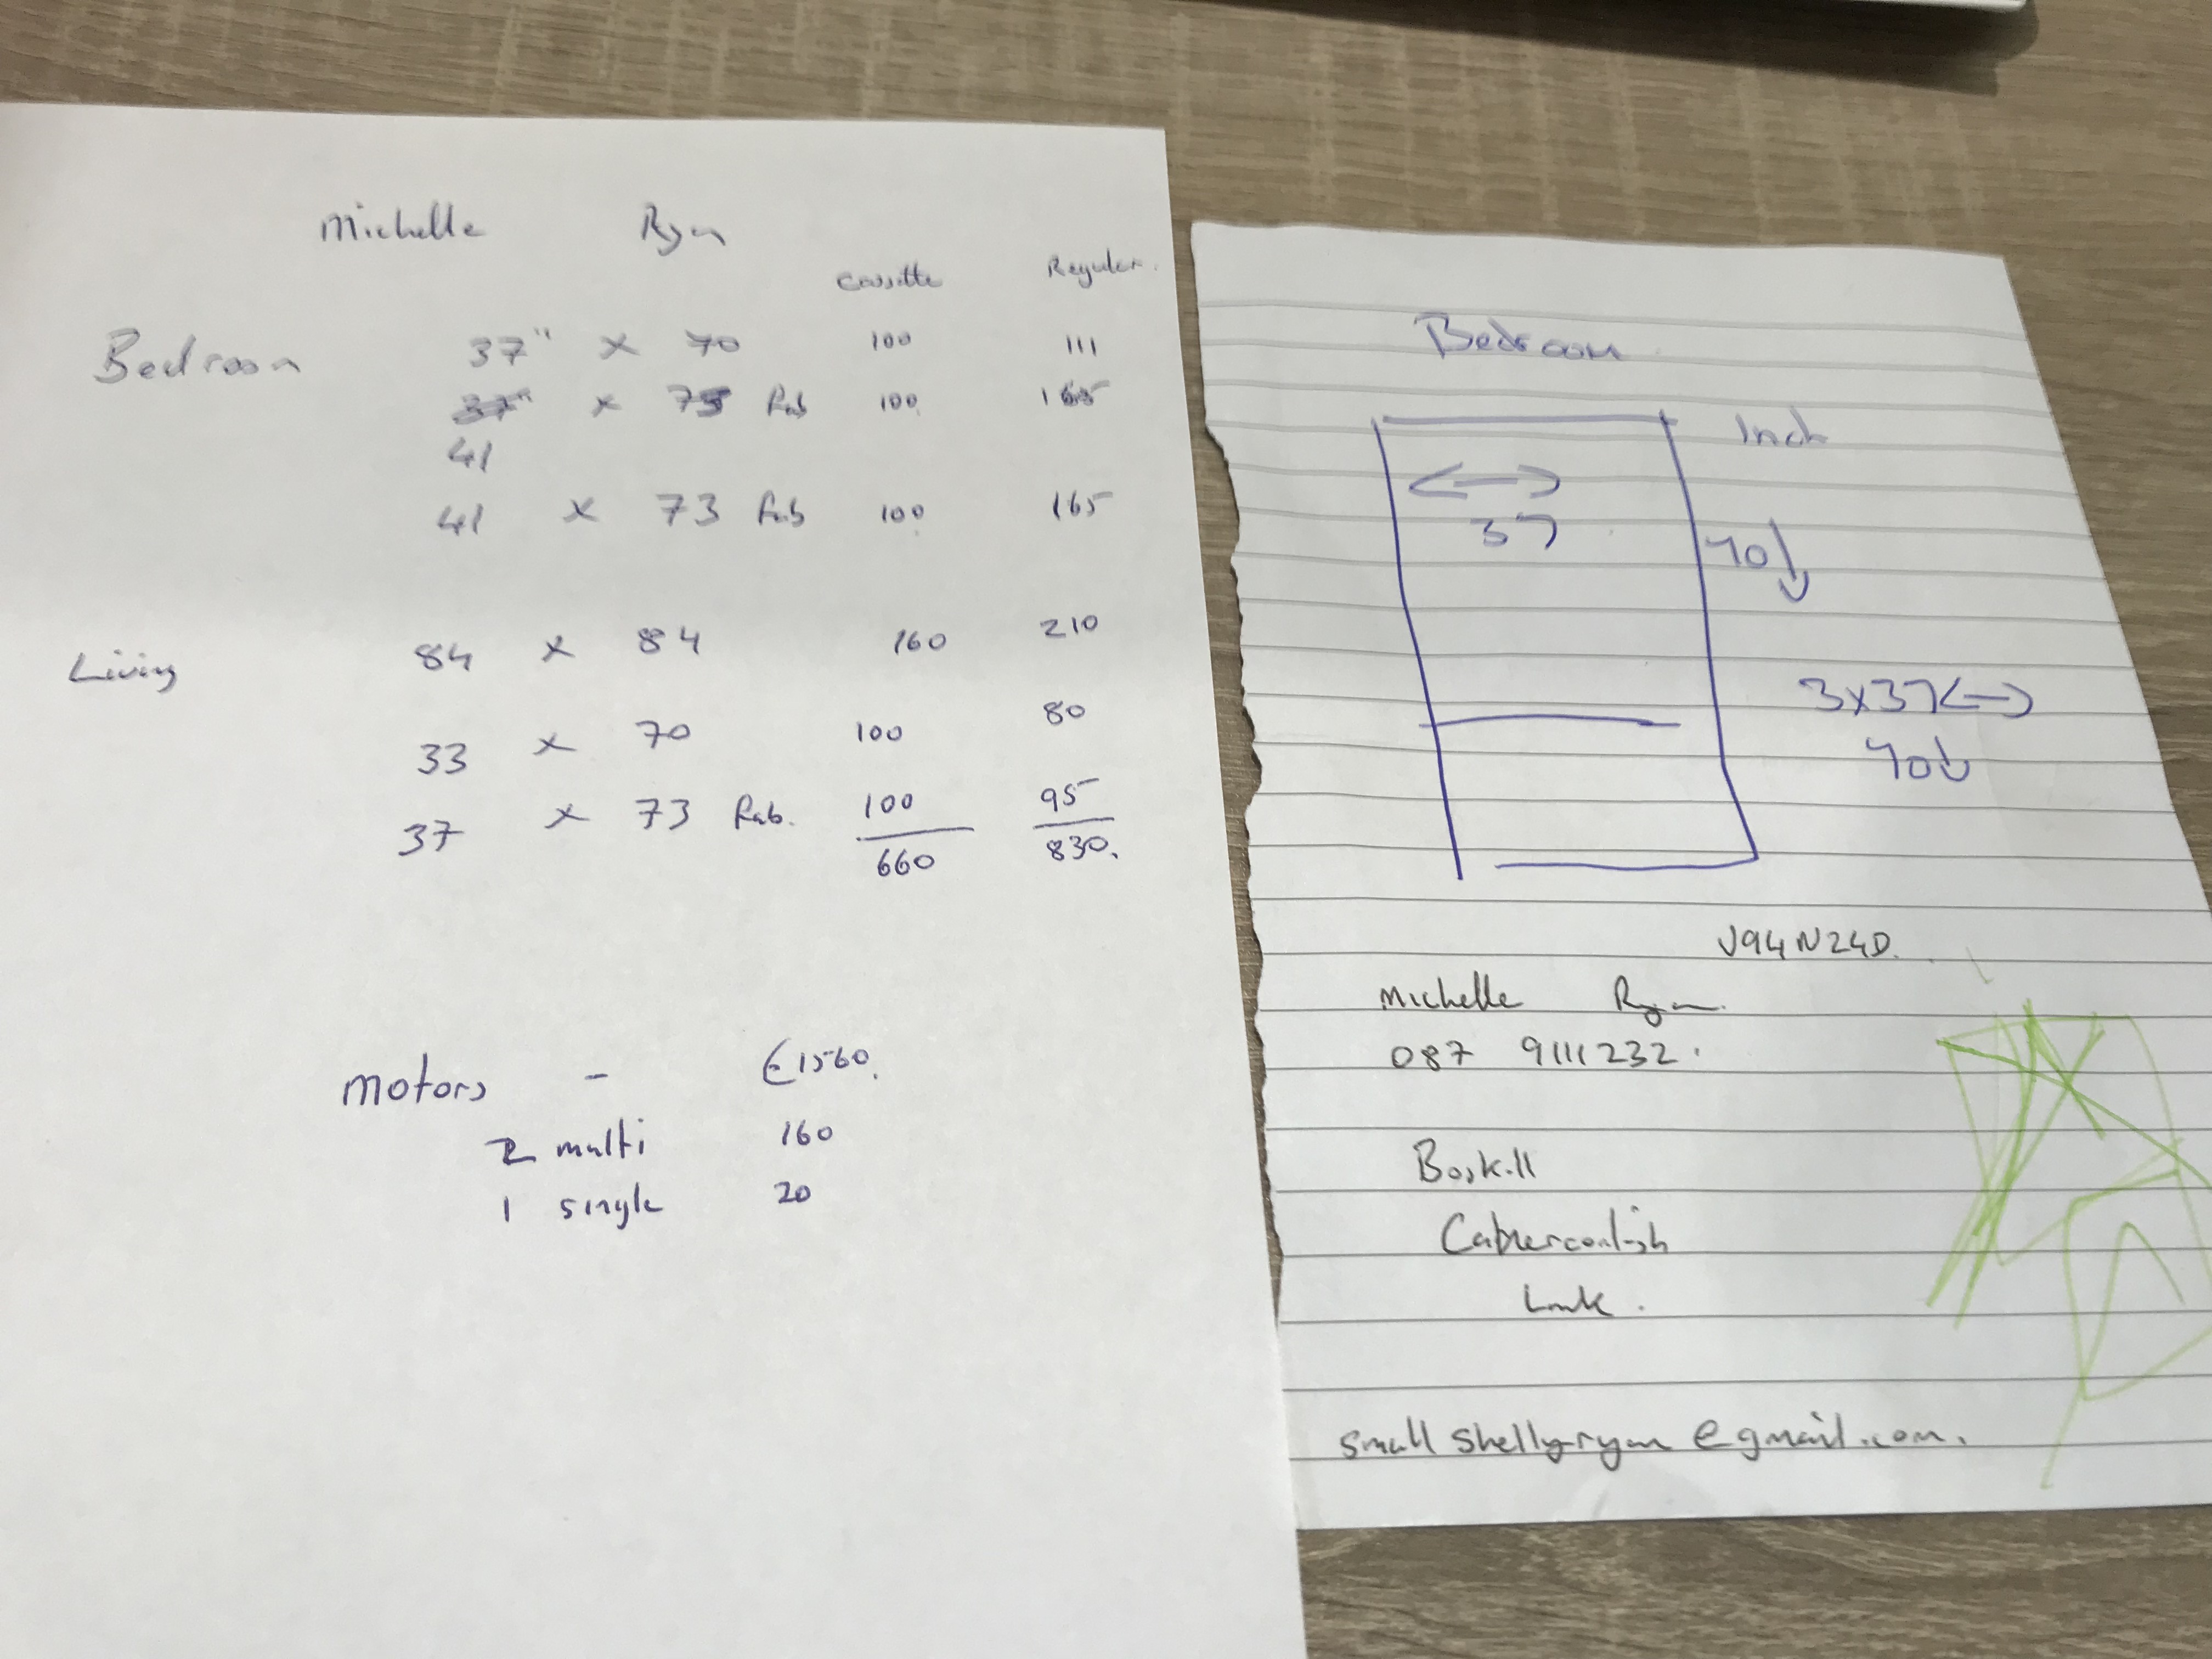 Michelle Ryan
Cassette Regular.
Bedroom 37" x 70 100 111
37" x 73 Rab 100 165
41
41 x 73 Rab 100 165
Living 84 x 84 160 210
33 x 70 100 80
37 x 73 Rab. 100 95
660 830.
Motors - €1560.
2 multi 160
1 single 20
Bedroom
Inch
37
70
3x37
70
V94N24D.
Michelle Ryan.
087 9111232.
Boskill
Caherconlish
Limk.
small shellyryan@gmail.com.